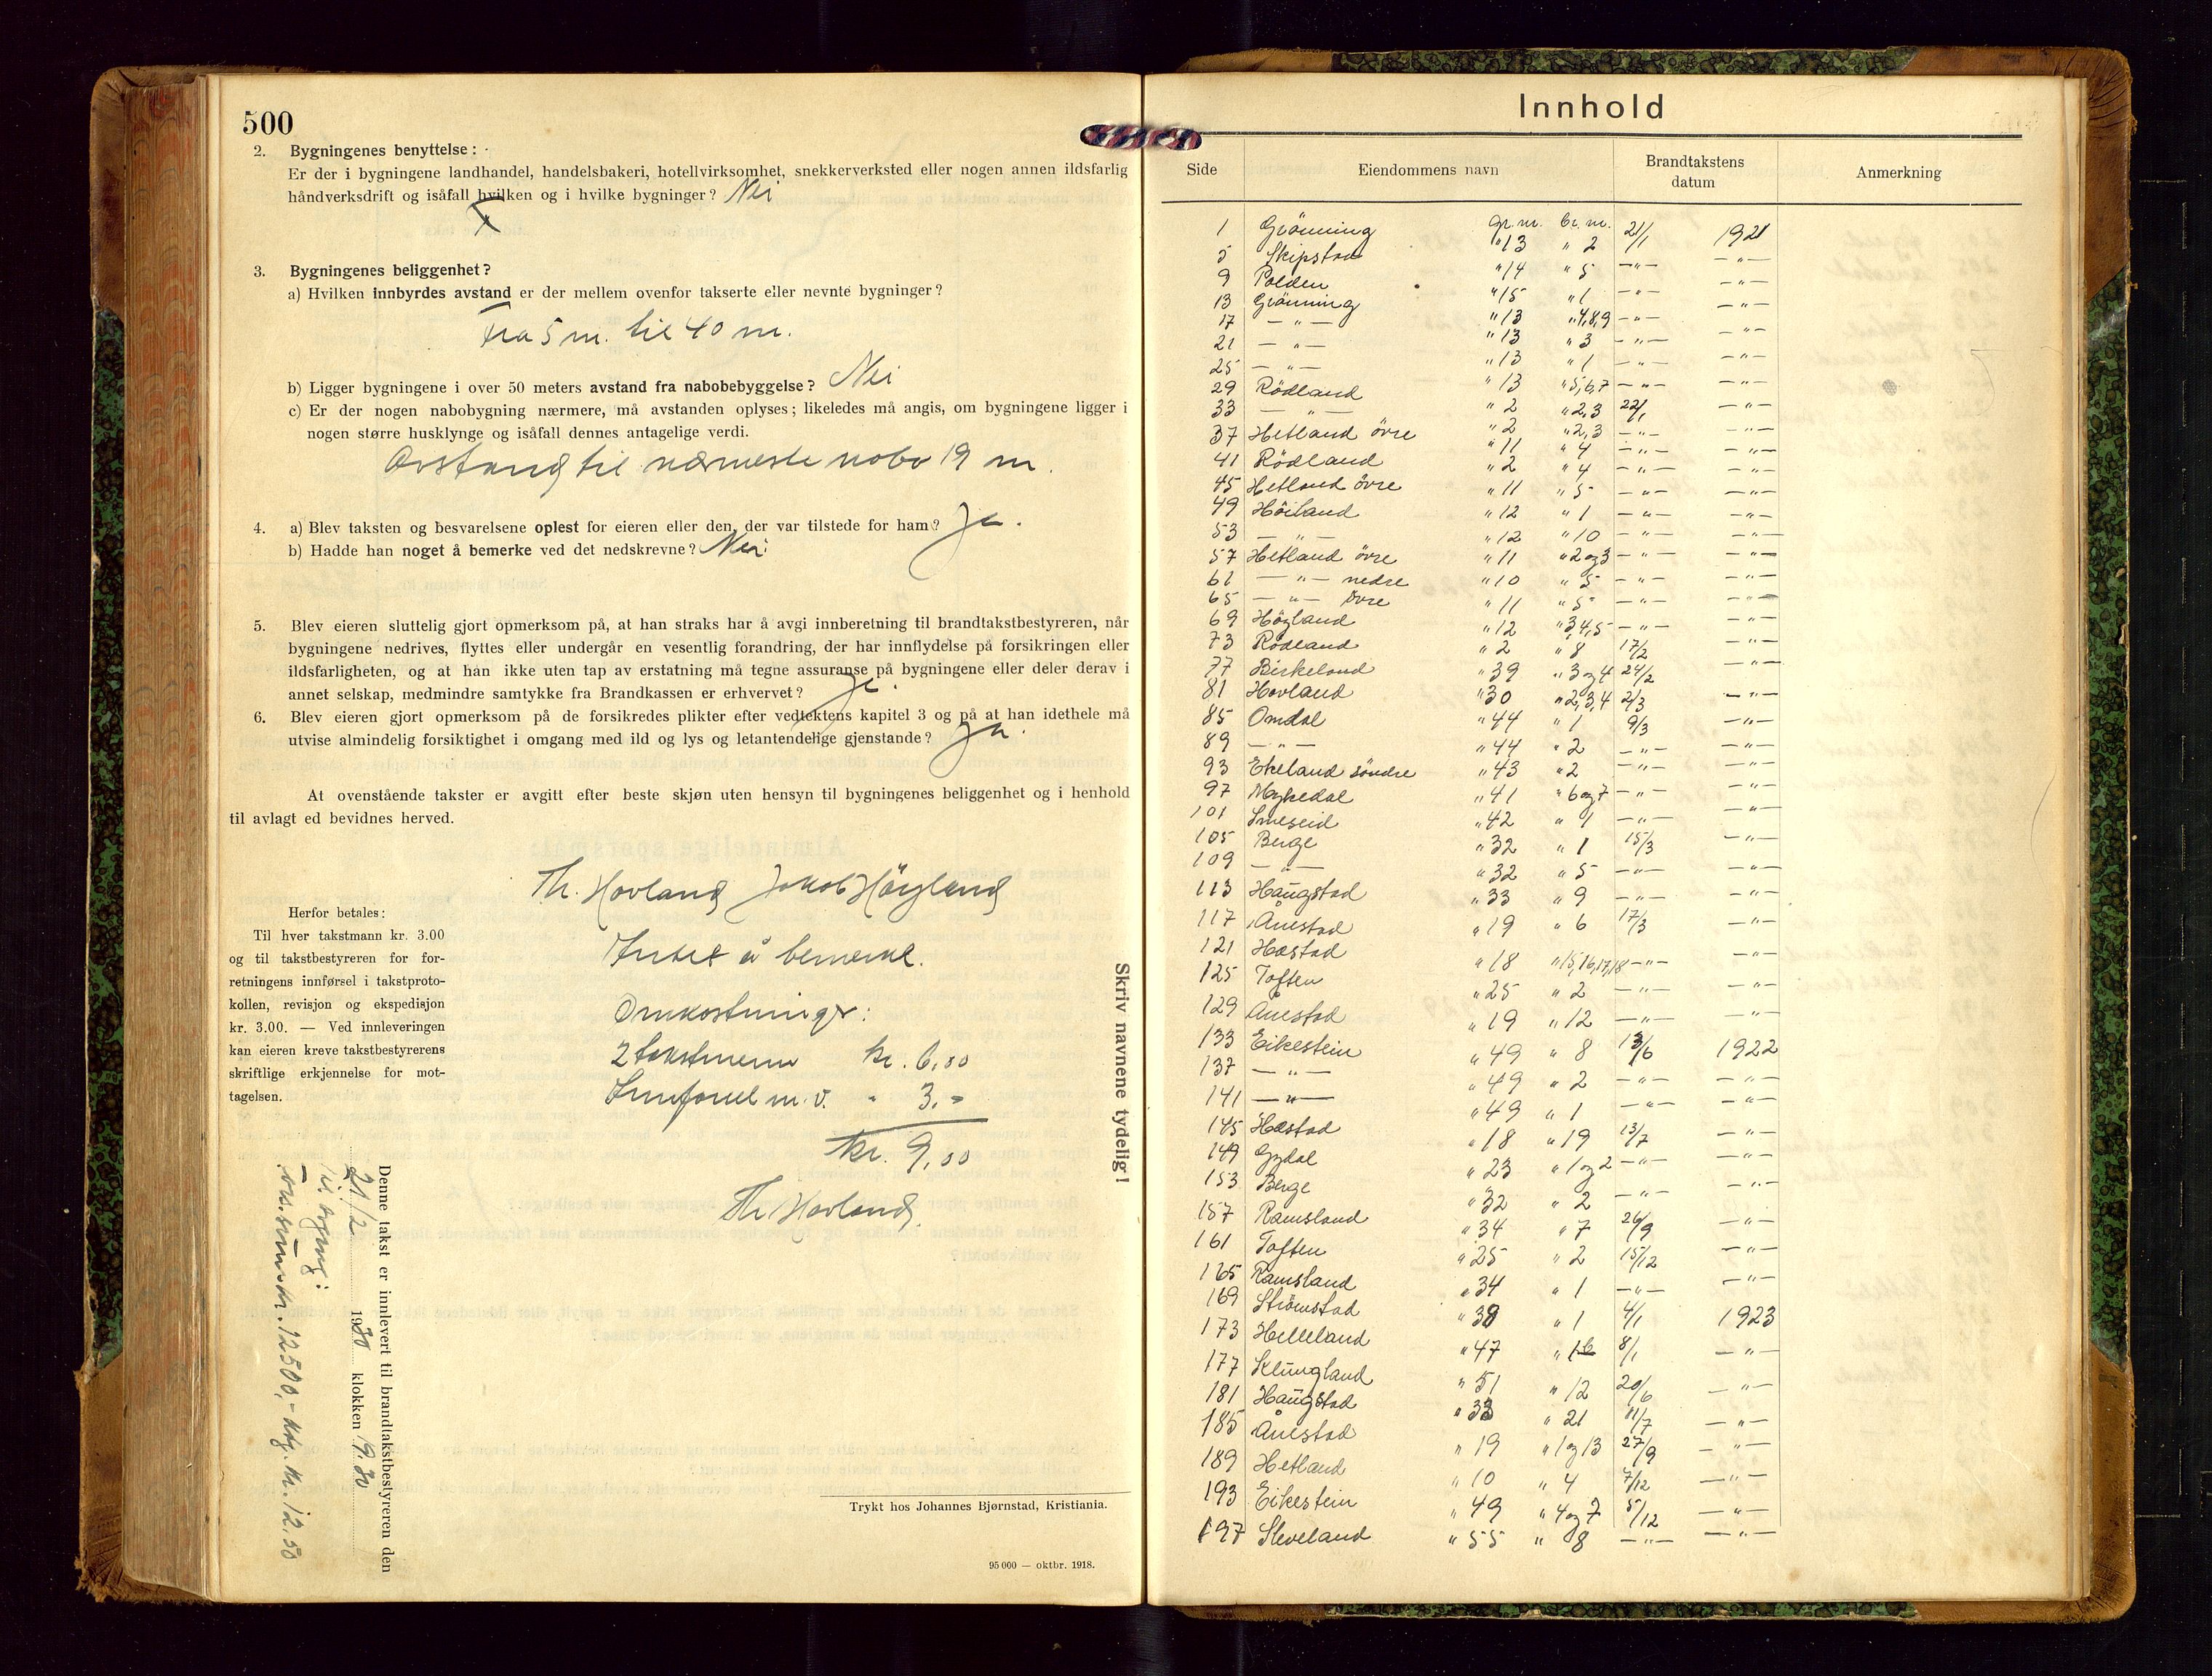 500
2. Bygningenes benyttelse:
Er der i bygningene landhandel, handelsbakeri, hotellvirksomhet, snekkerverksted eller nogen annen ildsfarlig
håndverksdrift og isåfall hvilken og i hvilke bygninger? Nei
3. Bygningenes beliggenhet?
a) Hvilken innbyrdes avstand er der mellem ovenfor takserte eller nevnte bygninger?
Fra 5 m. til 40 m.
b) Ligger bygningene i over 50 meters avstand fra nabobebyggelse? Nei
c) Er der nogen nabobygning nærmere, må avstanden oplyses; likeledes må angis, om bygningene ligger i
nogen større husklynge og isåfall dennes antagelige verdi.
Avstand til nærmeste nabo 19 m.
4. a) Blev taksten og besvarelsene oplest for eieren eller den, der var tilstede for ham? Ja.
b) Hadde han noget å bemerke ved det nedskrevne? Nei
5. Blev eieren sluttelig gjort opmerksom på, at han straks har å avgi innberetning til brandtakstbestyreren, når
bygningene nedrives, flyttes eller undergår en vesentlig forandring, der har innflydelse på forsikringen eller
ildsfarligheten, og at han ikke uten tap av erstatning må tegne assuranse på bygningene eller deler derav i
annet selskap, medmindre samtykke fra Brandkassen er erhvervet? Ja.
6. Blev eieren gjort opmerksom på de forsikredes plikter efter vedtektens kapitel 3 og på at han idethele må
utvise almindelig forsiktighet i omgang med ild og lys og letantendelige gjenstande? Ja.
At ovenstående takster er avgitt efter beste skjøn uten hensyn til bygningenes beliggenhet og i henhold
til avlagt ed bevidnes herved.
Th. Hovland Jakob Höyland
Intet å bemerke.
Omkostninger:
2 takstmenn kr. 6,00
Innförsel m.v. " 3,-
Kr. 9,00
Th. Hovland.
Herfor betales:
Til hver takstmann kr. 3.00
og til takstbestyreren for for-
retningens innførsel i takstproto-
kollen, revisjon og ekspedisjon
kr. 3.00. — Ved innleveringen
kan eieren kreve takstbestyrerens
skriftlige erkjennelse for mot-
tagelsen.
Skriv navnene tydelig!
Denne takst er innlevert til brandtakstbestyreren den
21/2 1930 klokken 9.30
Kr. 12500,- Ktg. kr. 12,50
Trykt hos Johannes Bjørnstad, Kristiania.
95 000 — oktbr. 1918.
Innhold
Side Eiendommens navn Brandtakstens datum Anmerkning
gr.nr. br.nr.
1 Grönning "13 "2 21/1 1921
5 Skipstad "14 "5 —"— —"—
9 Polden "15 "1 —"— —"—
13 Grönning "13 "4,8,9 —"— —"—
17 —"— "13 "3 —"— —"—
21 —"— "13 "1 —"— —"—
25 —"— "13 "5,6,7 —"— —"—
29 Rödland "2 "2,3 22/1 —"—
33 —"— "2 "2,3 —"— —"—
37 Hetland övre "11 "4 —"— —"—
41 Rödland "2 "4 —"— —"—
45 Hetland övre "11 "5 —"— —"—
49 Höiland "12 "1 —"— —"—
53 —"— "12 "10 —"— —"—
57 Hetland övre "11 "2og3 —"— —"—
61 —"— nedre "10 "5 —"— —"—
65 —"— övre "11 "5 —"— —"—
69 Höyland "12 "3,4,5 —"— —"—
73 Rödland "2 "8 17/2 —"—
77 Birkeland "39 "3og4 24/2 —"—
81 Hovland "30 "2,3,4 2/3 —"—
85 Omdal "44 "1 9/3 —"—
89 —"— "44 "2 —"— —"—
93 Ekeland söndre "43 "2 —"— —"—
97 Mykedal "41 "6og7 —"— —"—
101 Smeseid "42 "1 —"— —"—
105 Berge "32 "1 15/3 —"—
109 —"— "32 "5 —"— —"—
113 Haugstad "33 "9 —"— —"—
117 Åuestad "19 "6 17/3 —"—
121 Hæstad "18 "15,16,17,18 —"— —"—
125 Toften "25 "2 —"— —"—
129 Åuestad "19 "12 —"— —"—
133 Eikestein "49 "8 13/6 1922
137 —"— "49 "2 —"— —"—
141 —"— "49 "1 —"— —"—
145 Hæstad "18 "19 13/7 —"—
149 Gydal "23 "1og2 —"— —"—
153 Berge "32 "2 —"— —"—
157 Ramsland "34 "7 26/9 —"—
161 Toften "25 "2 15/12 —"—
165 Ramsland "34 "1 —"— —"—
169 Strömstad "38 "1 4/1 1923
173 Helleland "47 8/1 —"—
177 Klungland "51 "12 20/6 —"—
181 Haugstad "33 "21 11/7 —"—
185 Åuestad "19 "1og13 27/9 —"—
189 Hetland "10 "4 7/12 —"—
193 Eikestein "49 "4og7 5/12 —"—
197 Sleveland "55 "8 —"— —"—